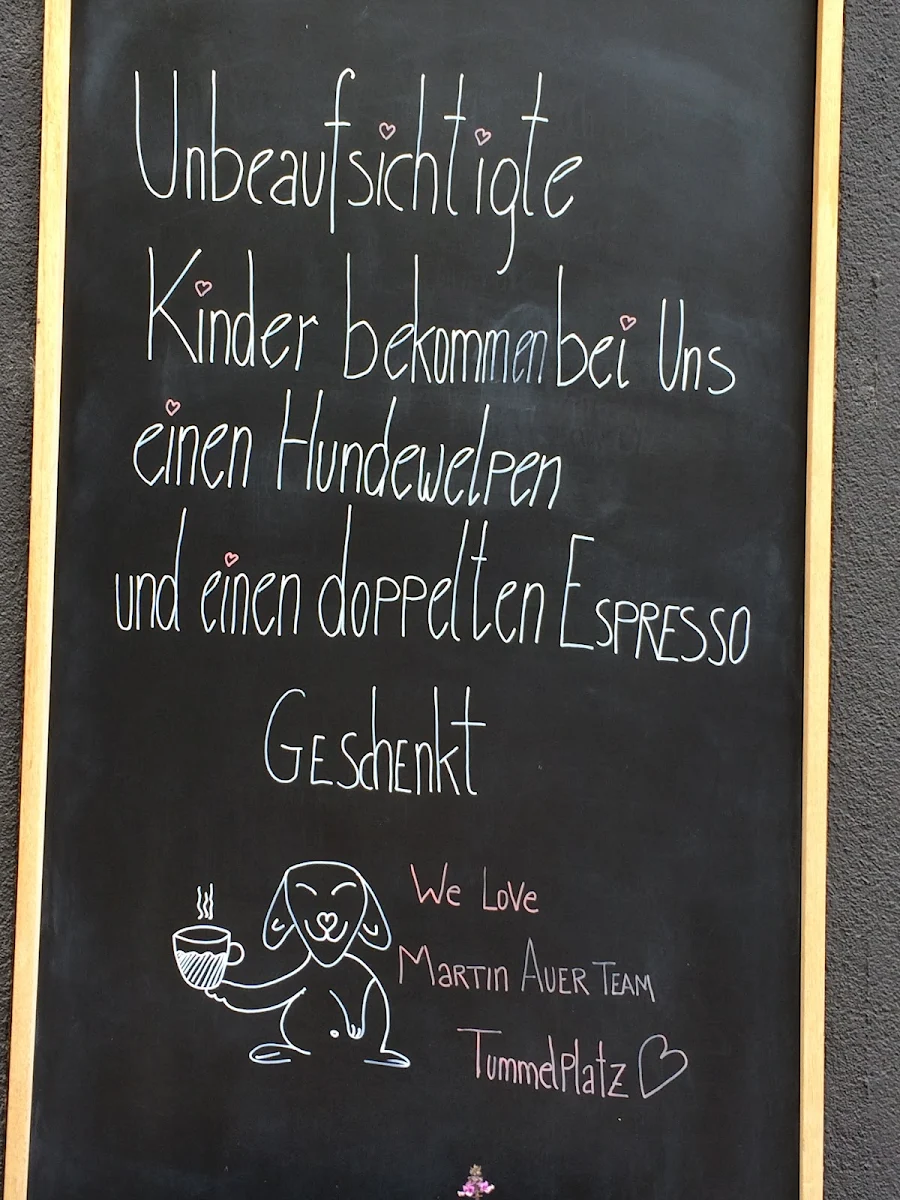 Unbeaufsichtigte
Kinder bekommen bei Uns
einen Hundewelpen
und einen doppelten ESPRESSO
GESchENkT
We LoVe
MaRTIN AUER TEAM
TummelPlatz